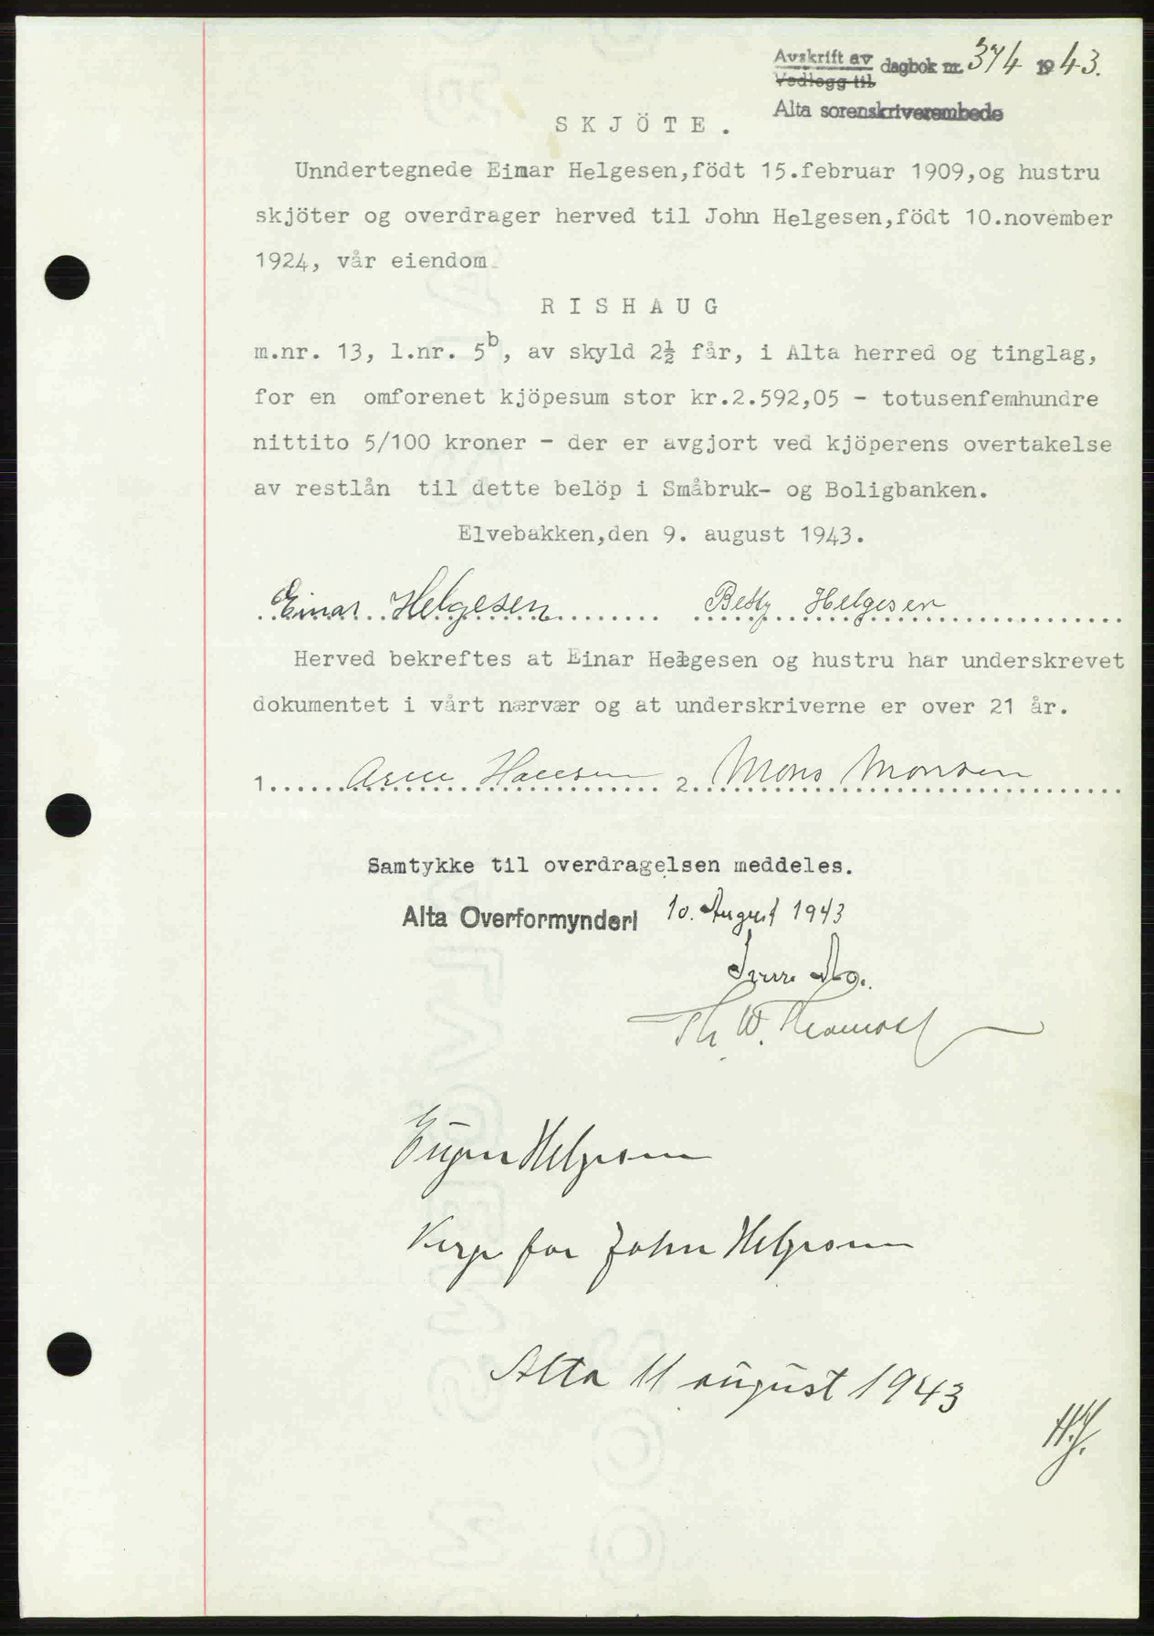 Avskrift av dagbok nr. 374 1943.
Vedlegg til
Alta sorenskriverembede
SKJÖTE.
Unndertegnede Einar Helgesen,födt 15.februar 1909,og hustru
skjöter og overdrager herved til John Helgesen,födt 10.november
1924, vår eiendom
RISHAUG
m.nr. 13, l.nr. 5b, av skyld 2½ får, i Alta herred og tinglag,
for en omforenet kjöpesum stor kr.2.592,05 - totusenfemhundre
nittito 5/100 kroner - der er avgjort ved kjöperens overtakelse
av restlån til dette belöp i Småbruk- og Boligbanken.
Elvebakken,den 9. august 1943.
Einar Helgesen Betty Helgesen
Herved bekreftes at Einar Helgesen og hustru har underskrevet
dokumentet i vårt nærvær og at underskriverne er over 21 år.
1. Arne Hansen 2. Mons Monsen
Samtykke til overdragelsen meddeles.
Alta Overformynderi 10. August 1943
Mo.
Th. W.
Eugen Helgesen
Verge for John Helgesen
Alta 11 august 1943
H.J.